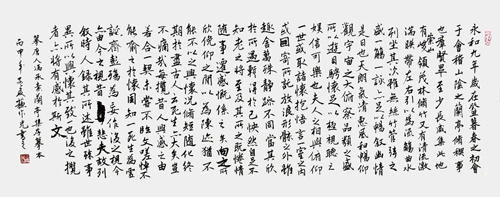 永和九年歲在癸丑暮春之初會
于會稽山陰之蘭亭脩稧事
也群賢畢至少長咸集此地
有崇山峻領茂林脩竹又有清流激
湍暎帶左右引以為流觴曲水
列坐其次雖無絲竹管弦之
盛一觴一詠亦足以暢敘幽情
是日也天朗氣清惠風和暢仰
觀宇宙之大俯察品類之盛
所以遊目騁懷足以極視聽之
娛信可樂也夫人之相與俯仰
一世或取諸懷抱悟言一室之內
或因寄所託放浪形骸之外雖
趣舍萬殊靜躁不同當其欣
於所遇暫得於己怏然自足不
知老之將至及其所之既惓情
隨事遷感慨係之矣向之所
欣俛仰之間以為陳迹猶不
能不以之興懷況脩短隨化終
期於盡古人云死生亦大矣豈
不痛哉每攬昔人興感之由
若合一契未嘗不臨文嗟悼不
能喻之於懷固知一死生為虛
誕齊彭殤為妄作後之視今
亦由今之視昔悲夫故列
敘時人錄其所述雖世殊事
異所以興懷其致一也後之攬
者亦將有感於斯文
摹唐人馮承素蘭亭集序摹本
丙申年